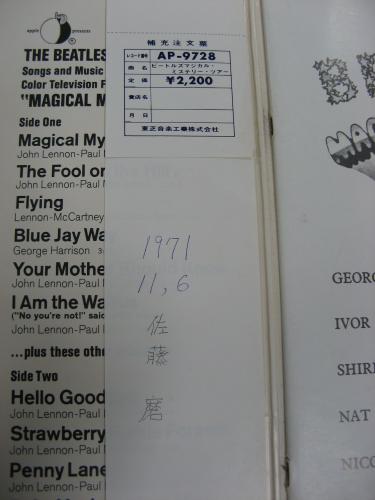 apple presents
THE BEATLES
Songs and Music
Color Television F
"MAGICAL M
Side One
Magical My
John Lennon-Paul
The Fool on
John Lennon-Paul
Flying
Lennon-McCartney
Blue Jay Way
George Harrison 3
Your Mothe
John Lennon-Paul
I Am the Wa
("No you're not!" said
John Lennon-Paul
...plus these othe
Side Two
Hello Good
John Lennon-Paul
Strawberry
John Lennon-Paul
Penny Lane
John Lennon-Paul
補充注文票
レコード番号 AP-9728
曲名 ビートルズマジカル・
ミステリー・ツアー
定価 ¥2,200
貴店名
月日
東芝音楽工業株式会社
1971
11,6
佐
藤
磨
MAG
GEORG
IVOR
SHIRL
NAT
NICO